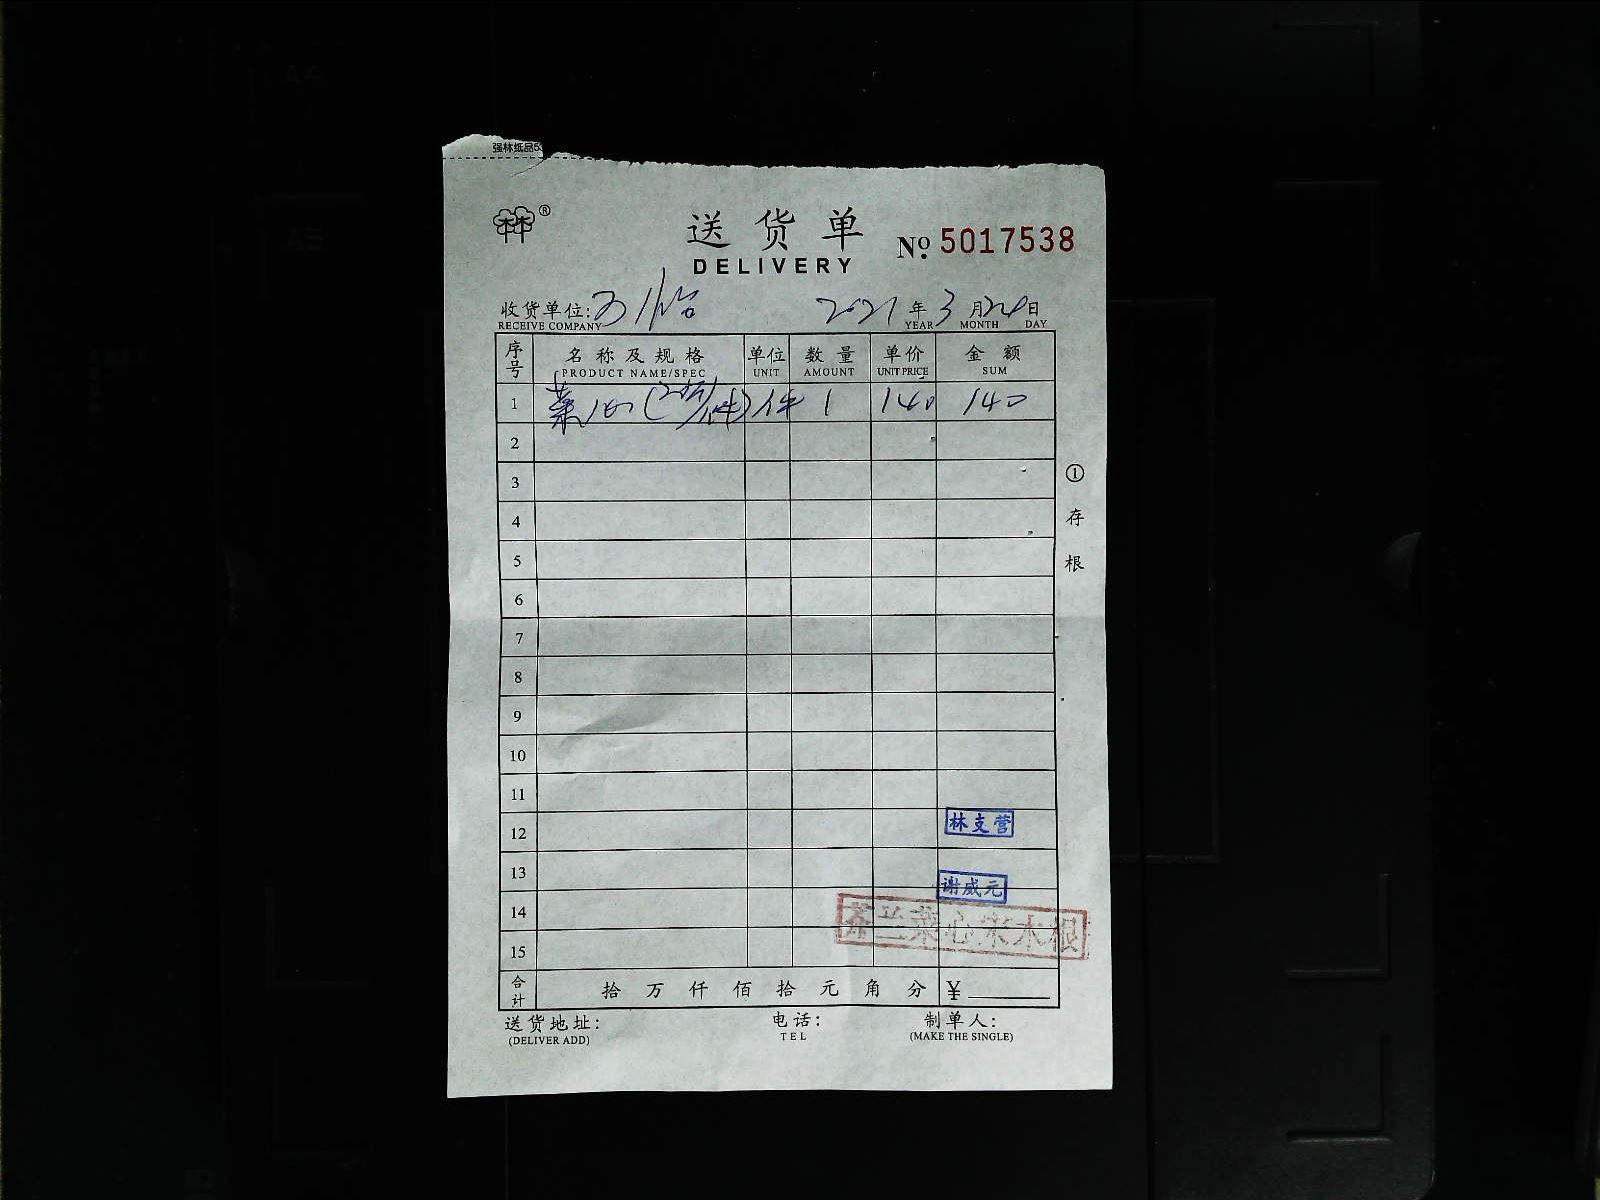 强林纸品
®
送货单
DELIVERY
№ 5017538
收货单位:
RECEIVE COMPANY
2021年3月 日
YEAR MONTH DAY
序号 名称及规格 单位 数量 单价 金额
PRODUCT NAME/SPEC UNIT AMOUNT UNIT PRICE SUM
1 菜心( /件) 件 1 140 140
2
3
4
5
6
7
8
9
10
11
12 林支营
13 谢威元
14
15
芥兰菜心宋木根
合计 拾 万 仟 佰 拾 元 角 分 ¥
① 存根
送货地址: 电话: 制单人:
(DELIVER ADD) TEL (MAKE THE SINGLE)